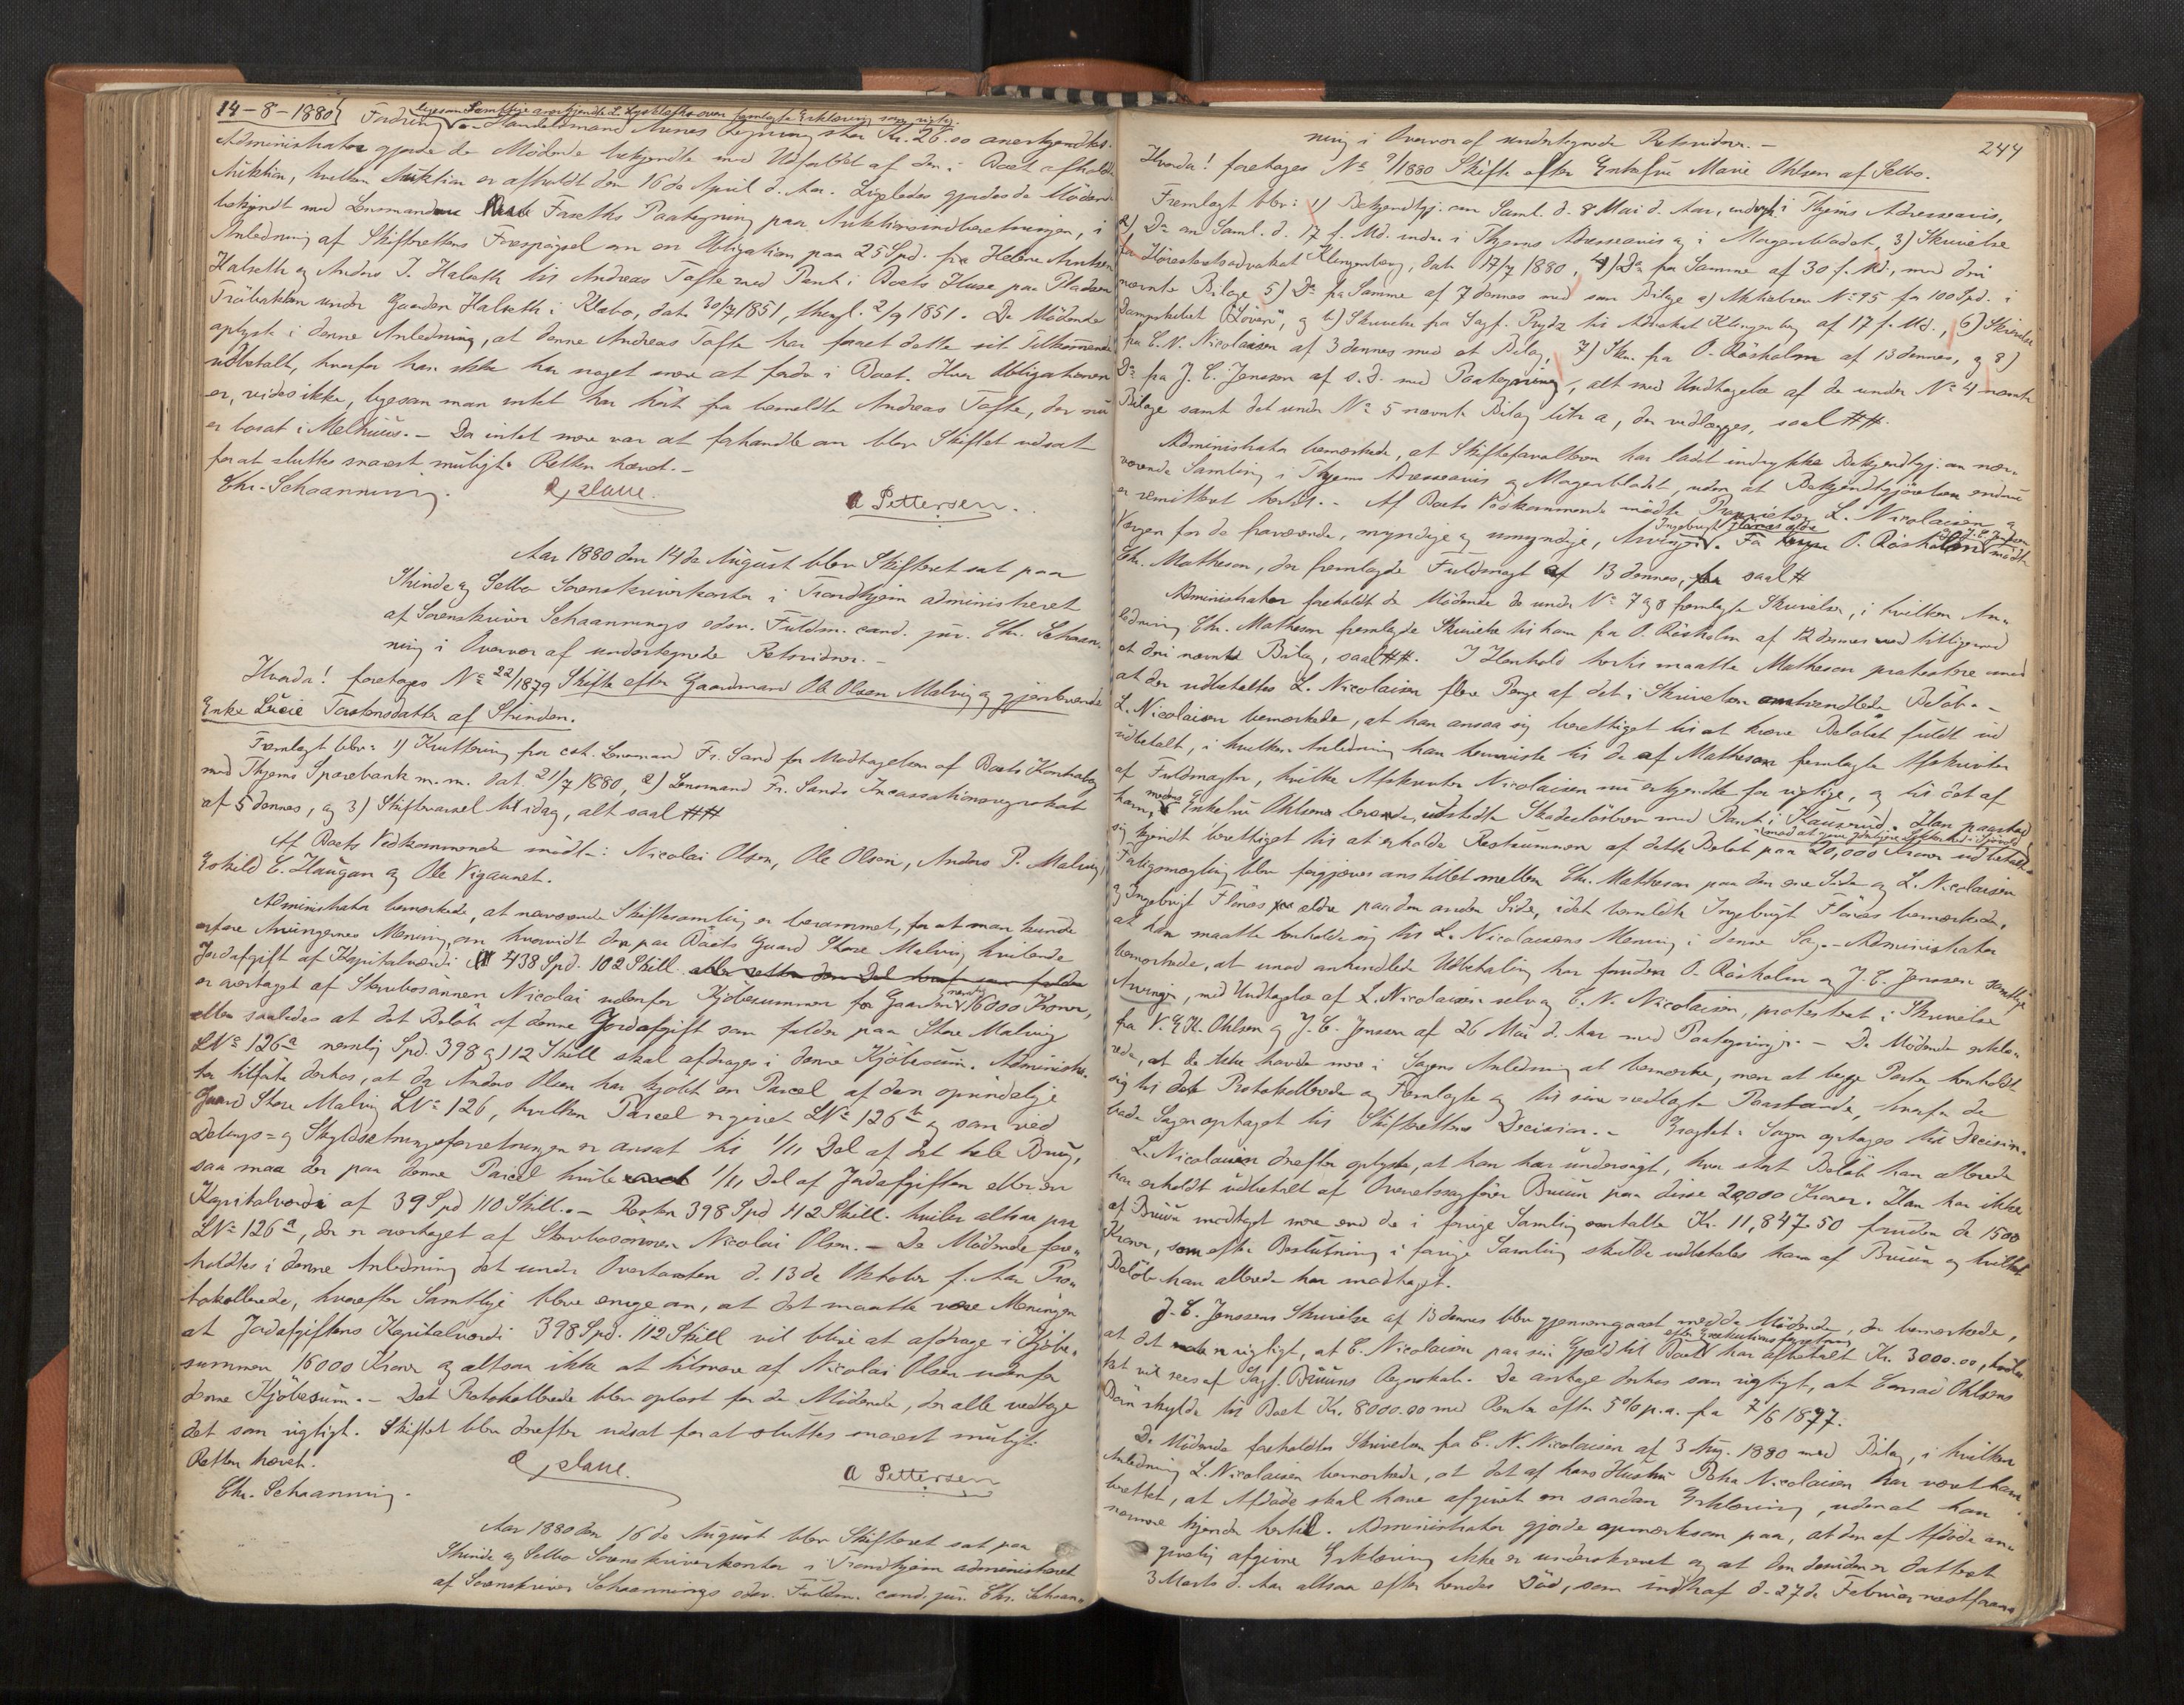 14-8-1880
ligesom Samtlige anerkjendte L. Lysklæths oven fremlagte Erklæring som rigtig.
Fordring Handelsmand Regning stor Kr. 26.00 anerkjendtes.
Administrator gjorde de Mødende bekjendte med Udfaldet af den i Boet afholdte
Auktion, hvilken Auktion er afholdt den 16de April d. Aar. Ligeledes gjordes de Mødende
bekjendt med Lensmand Faxeths Paategning paa Auktionsindberetningen, i
Anledning af Skifterettens Forespørgsel om en Obligation paa 25 Spd. fra Helene Arntsen
Halseth og Anders J. Halseth til Andreas Tofte med Pant i Boets Huse paa Pladsen
Trøbakken under Gaarden Halseth i Klæbo, dat. 30/7 1851, thingl. 2/9 1851. De Mødende
oplyste i denne Anledning, at denne Andreas Tofte har faaet dette sit Tilkommende
udbetalt, hvorfor han ikke har noget mere at fordre i Boet. Hvor Obligationen
er, vides ikke, ligesom man intet har hørt fra bemeldte Andreas Tofte, der nu
er bosat i Melhuus. - Da intet mere var at forhandle om blev Skiftet udsat
for at sluttes snarest muligt. Retten hævet. -
Chr. Schaanning.
A Pettersen.
Aar 1880 den 14de August blev Skifteret sat paa
Strinde og Selbo Sorenskriverkontor i Trondhjem administreret
af Sorenskriver Schaannings edsv. Fuldm. cand. jur. Chr. Schaan-
ning i Overvær af undertegnede Retsvidner. -
Hvorda! foretages No 22/1879 Skifte efter Gaardmand Ole Olsen Malvig og gjenlevende
Enke Lucie Torstensdatter af Strinden.
Fremlagt blev: 1) Kvittering fra cst. Lensmand Fr. Sand for Modtagelsen af Boets Kontrabog
med Thjems Sparebank m. m. dat. 21/7 1880, 2) Lensmand Fr. Sands Incassationsregnskab
af 5 dennes, og 3) Skiftevarsel til idag, alt saal ##
Af Boets Vedkommende mødte: Nicolai Olsen, Ole Olsen, Anders P. Malvig,
Eskild C. Haugan og Ole Vigaunet.
Administrator bemærkede, at nærværende Skiftesamling er berammet, for at man kunde
erfare Arvingernes Mening, om hvorvidt den paa Boets Gaard Store Malvig hvilende
Jordafgift af Kapitalværdi 438 Spd. 102 Skill.
er overtaget af Stervbosønnen Nicolai udenfor Kjøbesummen for Gaarden nemlig 16000 Kroner,
eller saaledes at det Beløb af denne Jordafgift som falder paa Store Malvig
LNo 126a nemlig Spd. 398 og 112 Skill skal afdrages i denne Kjøbesum. Administra-
tor tilførte derhos, at da Anders Olsen har kjøbt en Parcel af den oprindelige
Gaard Store Malvig LNo 126, hvilken Parcel er givet LNo 126b og som ved
Delings- og Skyldsetningsforretningen er ansat til 1/11 Del af det hele Brug,
saa maa der paa denne Parcel hvile 1/11 Del af Jordafgiften eller en
Kapitalværdi af 39 Spd 110 Skill. - Resten 398 Spd 112 Skill. hviler altsaa paa
LNo 126a, der er overtaget af Stervbosønnen Nicolai Olsen. - De Mødende fore-
holdtes i denne Anledning det under Overtaxten d. 13de Oktober f. Aar Pro-
tokollerede, hvorefter Samtlige bleve enige om, at det maatte være Meningen
at Jordafgiftens Kapitalværdi 398 Spd. 112 Skill vil blive at afdrage i Kjøbe-
summen 16000 Kroner og altsaa ikke at tilsvare af Nicolai Olsen udenfor
denne Kjøbesum. - Det Protokollerede blev oplæst for de Mødende, der alle vedtoge
det som rigtigt. Skiftet blev derefter udsat for at sluttes snarest muligt.
Retten hævet.
Chr. Schaanning.
A Pettersen
Aar 1880 den 16de August blev Skifteret sat paa
Strinde og Selbo Sorenskriverkontor i Trondhjem administreret
af Sorenskriver Schaannings edsv. Fuldm. cand. jur. Chr. Schaan-
244
ning i Overvær af undertegnede Retsvidner. -
Hvorda! foretages No 9/1880 Skifte efter Enkefru Marie Ohlsen af Selbo.
Fremlagt blev: 1) Bekjendtgj. om Saml. d. 8 Mai d. Aar, indryk. i Thjems Adresseavis,
2) Do om Saml. d. 17 f. Md. indr. i Thjems Adresseavis og i Morgenbladet, 3) Skrivelse
fra Høiesteretsadvokat Klingenberg, dat. 17/7 1880, 4) Do fra Samme af 30 f. Md., med deri
nævnte Bilage 5) Do fra Samme af 7 dennes med som Bilage a) Aktiebrev No 95 for 100 Spd. i
Dampskibet "Løven", og b) Skrivelse fra Sagf. Prydz til Advokat Klingenberg af 17 f. Md., 6) Skrivelse
fra C. N. Nicolaisen af 3 dennes med et Bilag, 7) Skr. fra O. Røsholm af 13 dennes, og 8)
Do fra J. C. Jenssen af s. d. med Paategning, alt med Undtagelse af de under No 4 nævnte
Bilage samt det under No 5 nævnte Bilag litr. a, der vedlægges, saal ##.
Administrator bemærkede, at Skifteforvalteren har ladet indrykke Bekjendtgj. om nær-
værende Samling i Thjems Adresseavis og Morgenbladet, uden at Bekjendtgjørelsen endnu
er remitteret hertil. - Af Boets Vedkommende mødte Proprietær L. Nicolaisen og
Ingebrigt Flønæs ældre
Værgen for de fraværende, myndige og umyndige, Arvinger. For O. Røsholm og J. C. Jenssen mødte
Chr. Matheson, der fremlagde Fuldmagt af 13 dennes, saal #
Administrator foreholdt de Mødende de under No 7 og 8 fremlagte Skrivelser, i hvilken An-
ledning Chr. Matheson fremlagde Skrivelse til ham fra O. Røsholm af 12 dennes med tilligemed
et deri nævnte Bilag, saal ##. I Henhold hertil maatte Matheson protestere mod
at der udbetaltes L. Nicolaisen flere Penge af det i Skrivelsen omhandlede Beløb. -
L. Nicolaisen bemærkede, at han ansaa sig berettiget til at kræve Beløbet fuldt ud
udbetalt, i hvilken Anledning han henviste til de af Matheson fremlagte Afskrifter
af Fuldmagter, hvilke Afskrifter Nicolaisen nu erkjendte for rigtige, og til det af
ham, medens Enkefru Ohlsen levede, udstedte Skadesløsbrev med Pant i Kausrud. Han paastod
mod at give fornøden Sikkerhed
sig kjendt berettiget til at erholde Restsummen af dette Beløb paa 20,000 Kroner udbetalt.
Forligsmægling blev forgjæves anstillet mellem Chr. Matheson paa den ene Side og L. Nicolaisen
og Ingebrigt Flønæs ældre paa den anden Side, idet bemeldte Ingebrigt Flønæs bemærkede,
at han maatte henholde sig til L. Nicolaisens Mening i denne Sag. - Administrator
bemærkede, at mod omhandlede Udbetaling har foruden O. Røsholm og J. C. Jenssen samtlige
Arvinger, med Undtagelse af L. Nicolaisen selv og C. N. Nicolaisen, protesteret i Skrivelse
fra Ohlsen og J. C. Jenssen af 26 Mai d. Aar med Paategninger. - De Mødende erklæ-
rede, at de ikke havde mere i Sagens Anledning at bemærke, men at begge Parter henholdt
sig til det Protokollerede og Fremlagte og til sine nedlagte Paastande, hvorfor de
bade Sagen optaget til Skifterettens Decision. - Eragtet: Sagen optages til Decision.
L. Nicolaisen derefter oplyste, at han har undersøgt, hvor stort Beløb han allerede
har erholdt udbetalt af Overretssagfører Bruun paa disse 20,000 Kroner. Han har ikke
af Bruun modtaget mere end de i forrige Samling omtalte Kr. 11,847.50 foruden de 1500
Kroner, som efter Beslutning i forrige Samling skulde udbetales ham af Bruun og hvilket
Beløb han allerede har modtaget.
J. C. Jenssens Skrivelse af 13 dennes blev gjennemgaaet med de Mødende, der bemærkede,
efter Exekutionsforretning
at det er rigtigt, at C. Nicolaisen paa sin Gjæld til Boet har afbetalt Kr. 3000.00, hvilket
vil sees af Sagf. Bruuns Regnskab. De antoge derhos som rigtigt, at Conrad Ohlsens
Børn skylde til Boet Kr. 8000.00 med Renter efter 5% p. a. fra 7/6 1877.
De Mødende foreholdtes Skrivelsen fra C. N. Nicolaisen af 3 Aug. 1880 med Bilag, i hvilken
Anledning L. Nicolaisen bemærkede, at det af hans Hustru Petra Nicolaisen har været ham
berettet, at Afdøde skal have afgivet en saadan Erklæring, uden at han
nærmere kjender hertil. Administrator gjorde opmærksom paa, at den af Afdøde an-
givelig afgivne Erklæring ikke er underskrevet og at den desuden er dateret
3 Marts d. Aar altsaa efter hendes Død, som indtraf d. 27de Februar næstforan-